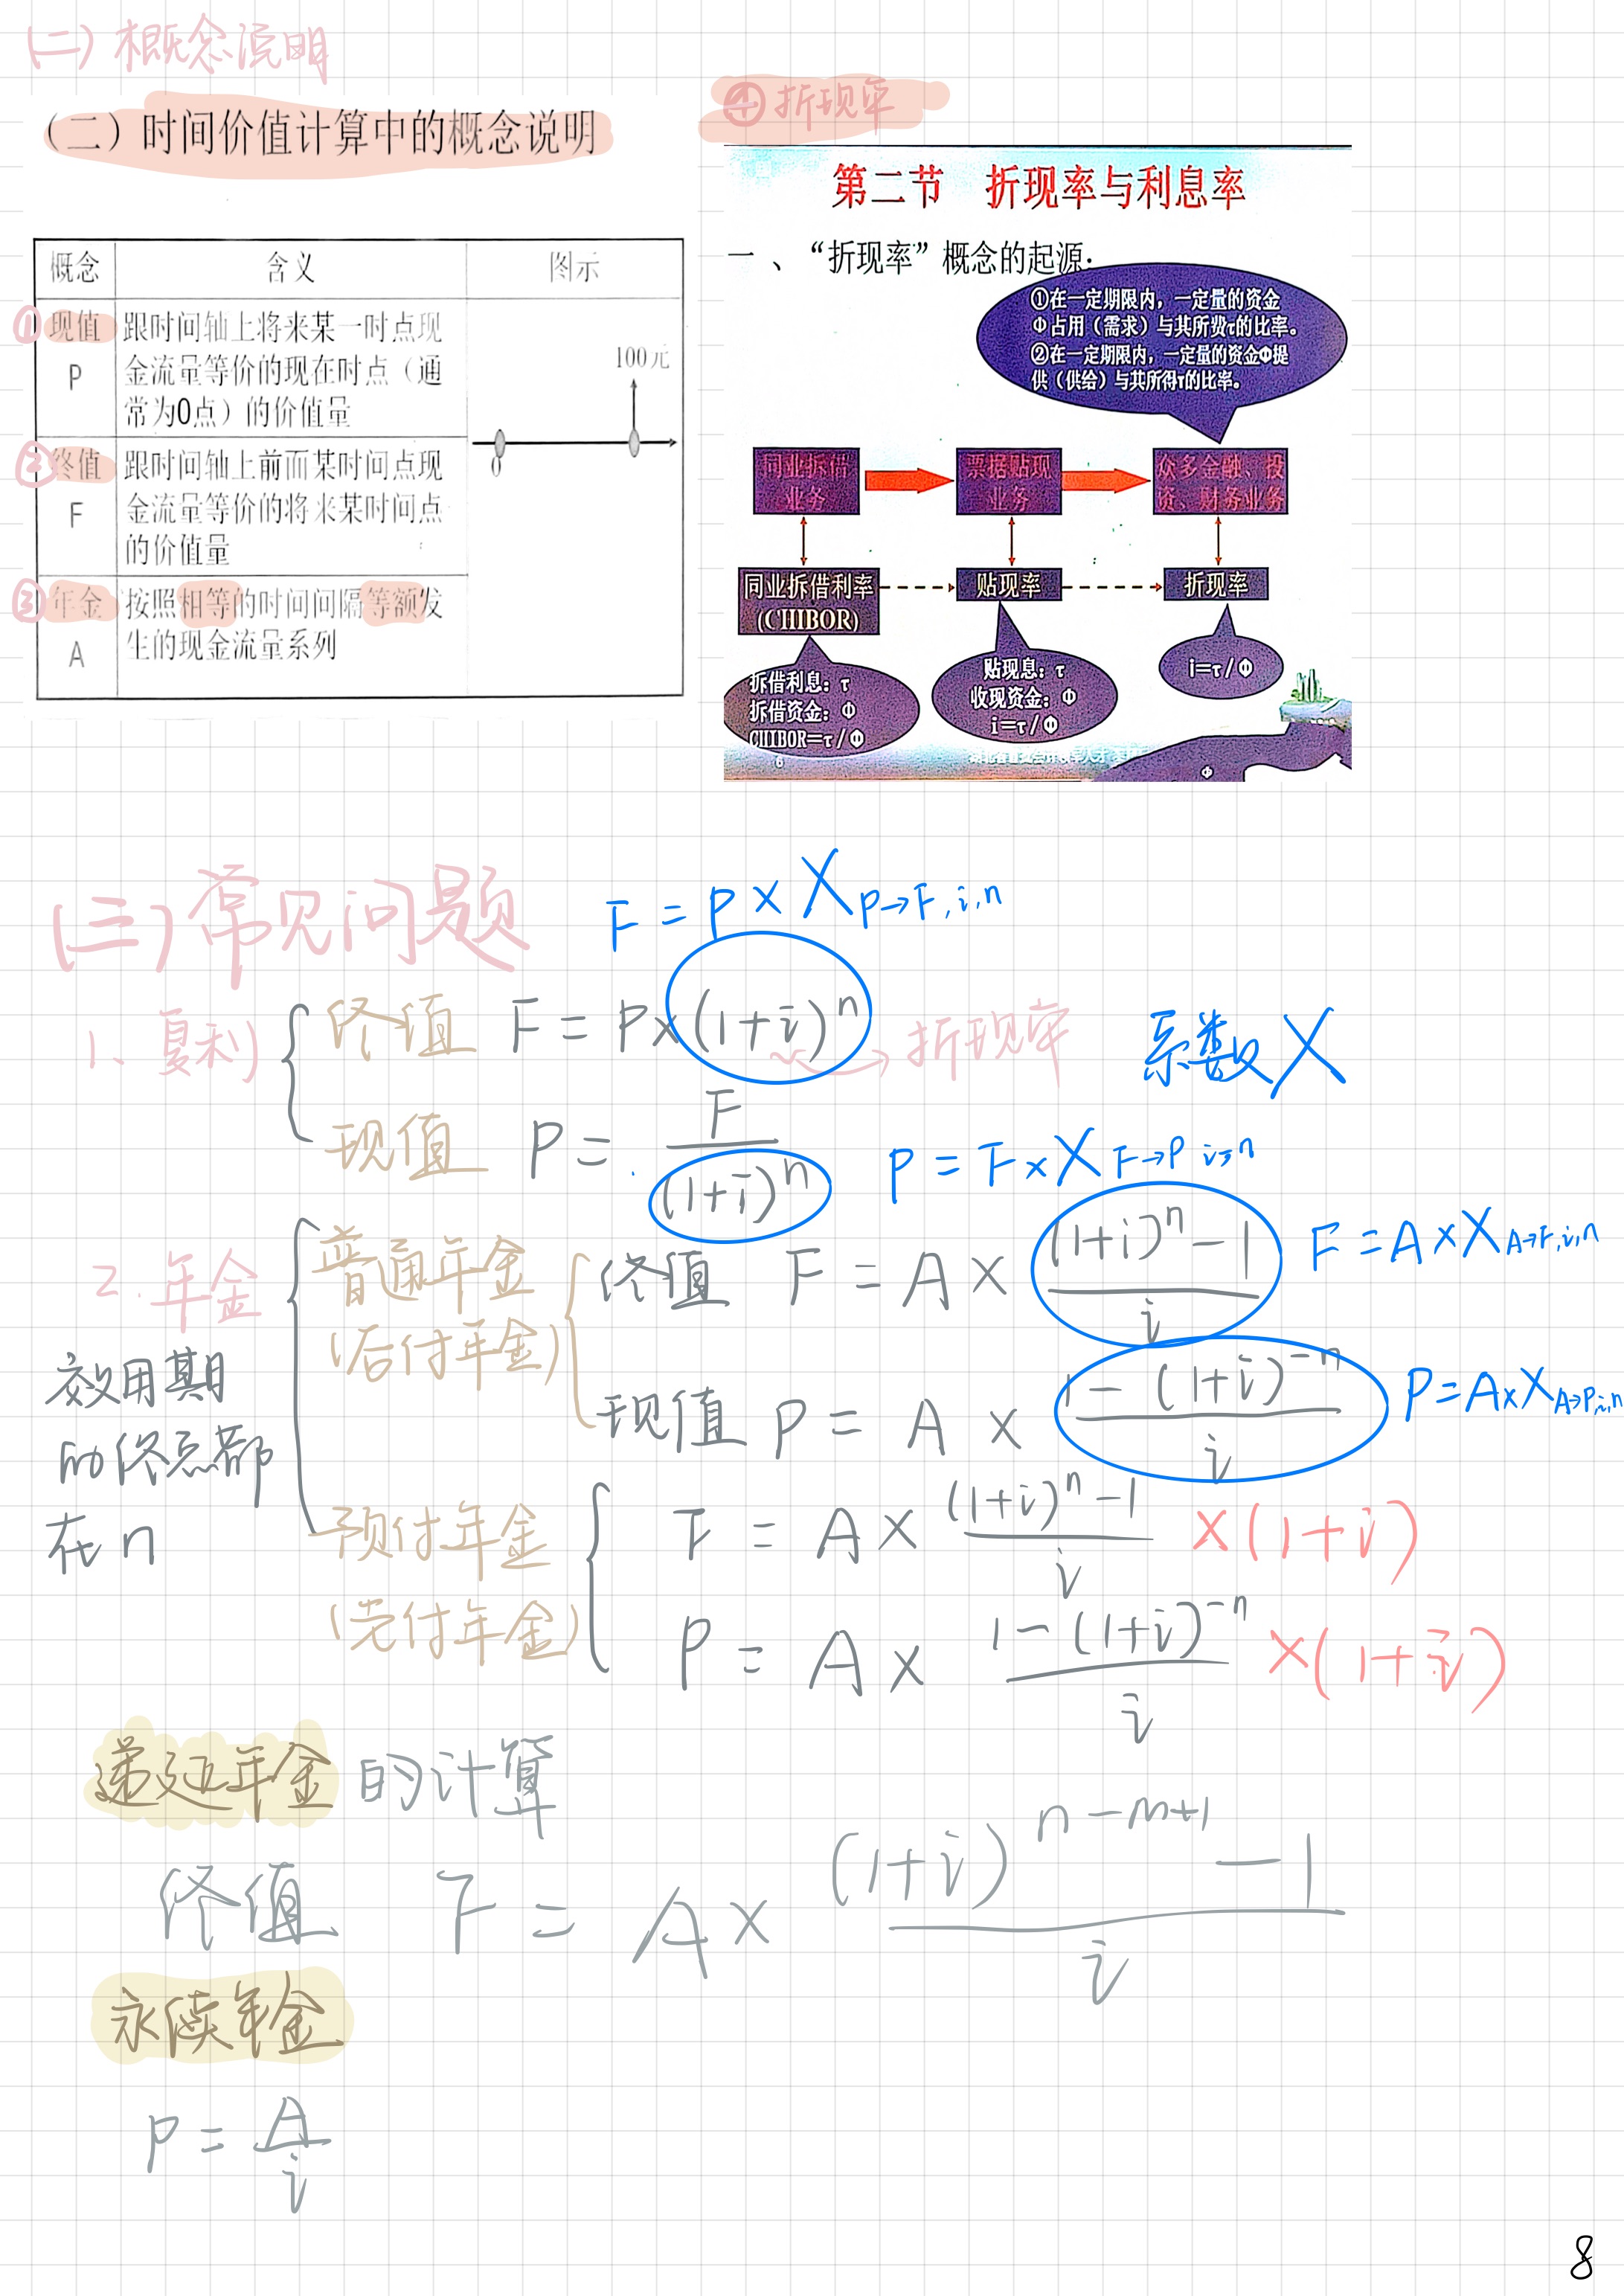 (二)概念说明
(二)时间价值计算中的概念说明
概念 含义 图示
①现值 P 跟时间轴上将来某一时点现
金流量等价的现在时点（通
常为0点）的价值量
100元
0
②终值 F 跟时间轴上前面某时间点现
金流量等价的将来某时间点
的价值量
③年金 A 按照相等的时间间隔等额发
生的现金流量系列
④折现率
第二节 折现率与利息率
一、“折现率”概念的起源:
①在一定期限内，一定量的资金
Φ占用（需求）与其所费τ的比率。
②在一定期限内，一定量的资金Φ提
供（供给）与其所得τ的比率。
同业拆借
业务
票据贴现
业务
众多金融、投
资、财务业务
同业拆借利率
(CHIBOR)
贴现率
折现率
拆借利息: τ
拆借资金: Φ
CHIBOR=τ/Φ
贴现息: τ
收现资金: Φ
i=τ/Φ
i=τ/Φ
6
(三)常见问题
F=P×X P→F,i,n
1、复利
终值 F=P×(1+i)^n → 折现率
系数X
现值 P=F/(1+i)^n
P=F×X F→P i,n
2.年金
效用期
的终点都
在n
普通年金
(后付年金)
终值 F=A×((1+i)^n-1)/i
F=A×X A→F,i,n
现值 P=A×(1-(1+i)^-n)/i
P=A×X A→P,i,n
预付年金
(先付年金)
F=A×((1+i)^n-1)/i ×(1+i)
P=A×(1-(1+i)^-n)/i ×(1+i)
递延年金的计算
终值 F=A×((1+i)^(n-m+1)-1)/i
永续年金
P=A/i
8